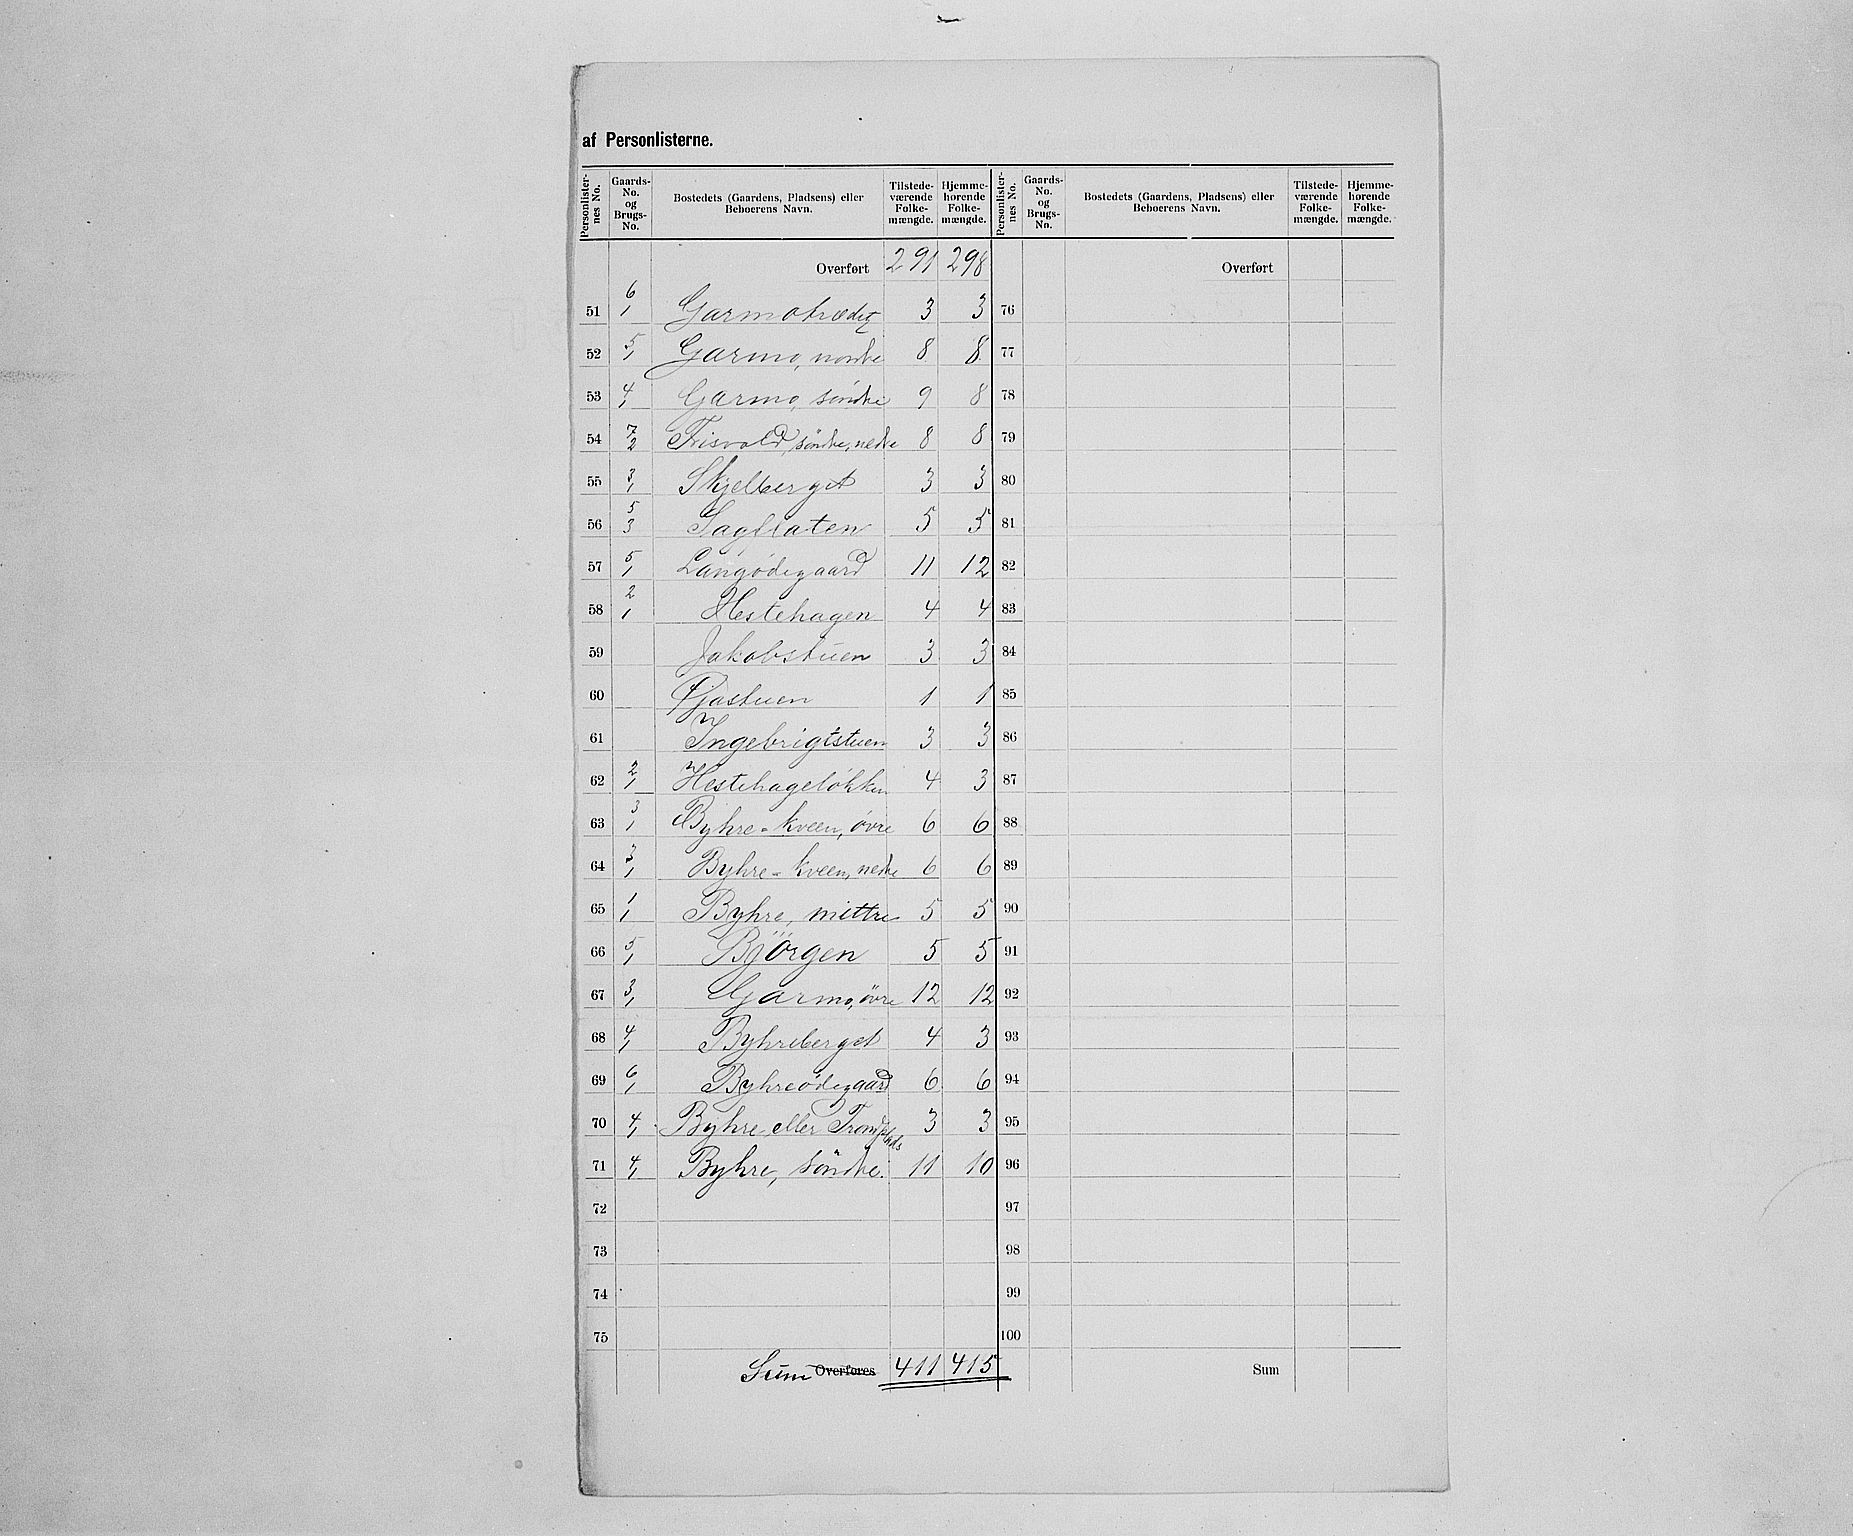 af Personlisterne.
Personlister-nes No. | Gaards-No. og Brugs-No. | Bostedets (Gaardens, Pladsens) eller Beboerens Navn. | Tilstede-værende Folke-mængde. | Hjemme-hørende Folke-mængde. | Personlister-nes No. | Gaards-No. og Brugs-No. | Bostedets (Gaardens, Pladsens) eller Beboerens Navn. | Tilstede-værende Folke-mængde. | Hjemme-hørende Folke-mængde.
Overført 291 298 Overført
51 6/1 Garmotrædet 3 3 76
52 5/1 Garmo, nordre 8 8 77
53 4/1 Garmo, söndre 9 8 78
54 7/2 Frisvold, söndre, nedre 8 8 79
55 3/1 Skjelberget 3 3 80
56 5/3 Sagflaten 5 5 81
57 5/1 Langödegaard 11 12 82
58 2/1 Hestehagen 4 4 83
59 Jakobstuen 3 3 84
60 1 1 85
61 Ingebrigtstuen 3 3 86
62 2/1 Hestehagelökken 4 3 87
63 3/1 Byhre-kveen, övre 6 6 88
64 3/1 Byhre-kveen, nedre 6 6 89
65 1/1 Byhre, mittre 5 5 90
66 5/1 Björgen 5 5 91
67 3/1 Garmo, övre 12 12 92
68 4/1 Byhreberget 4 3 93
69 6/1 Byhreödegaard 6 6 94
70 4/1 Byhre eller 3 3 95
71 4/1 Byhre, söndre. 11 10 96
72 97
73 98
74 99
75 100
Sum Overføres 411 415 Sum